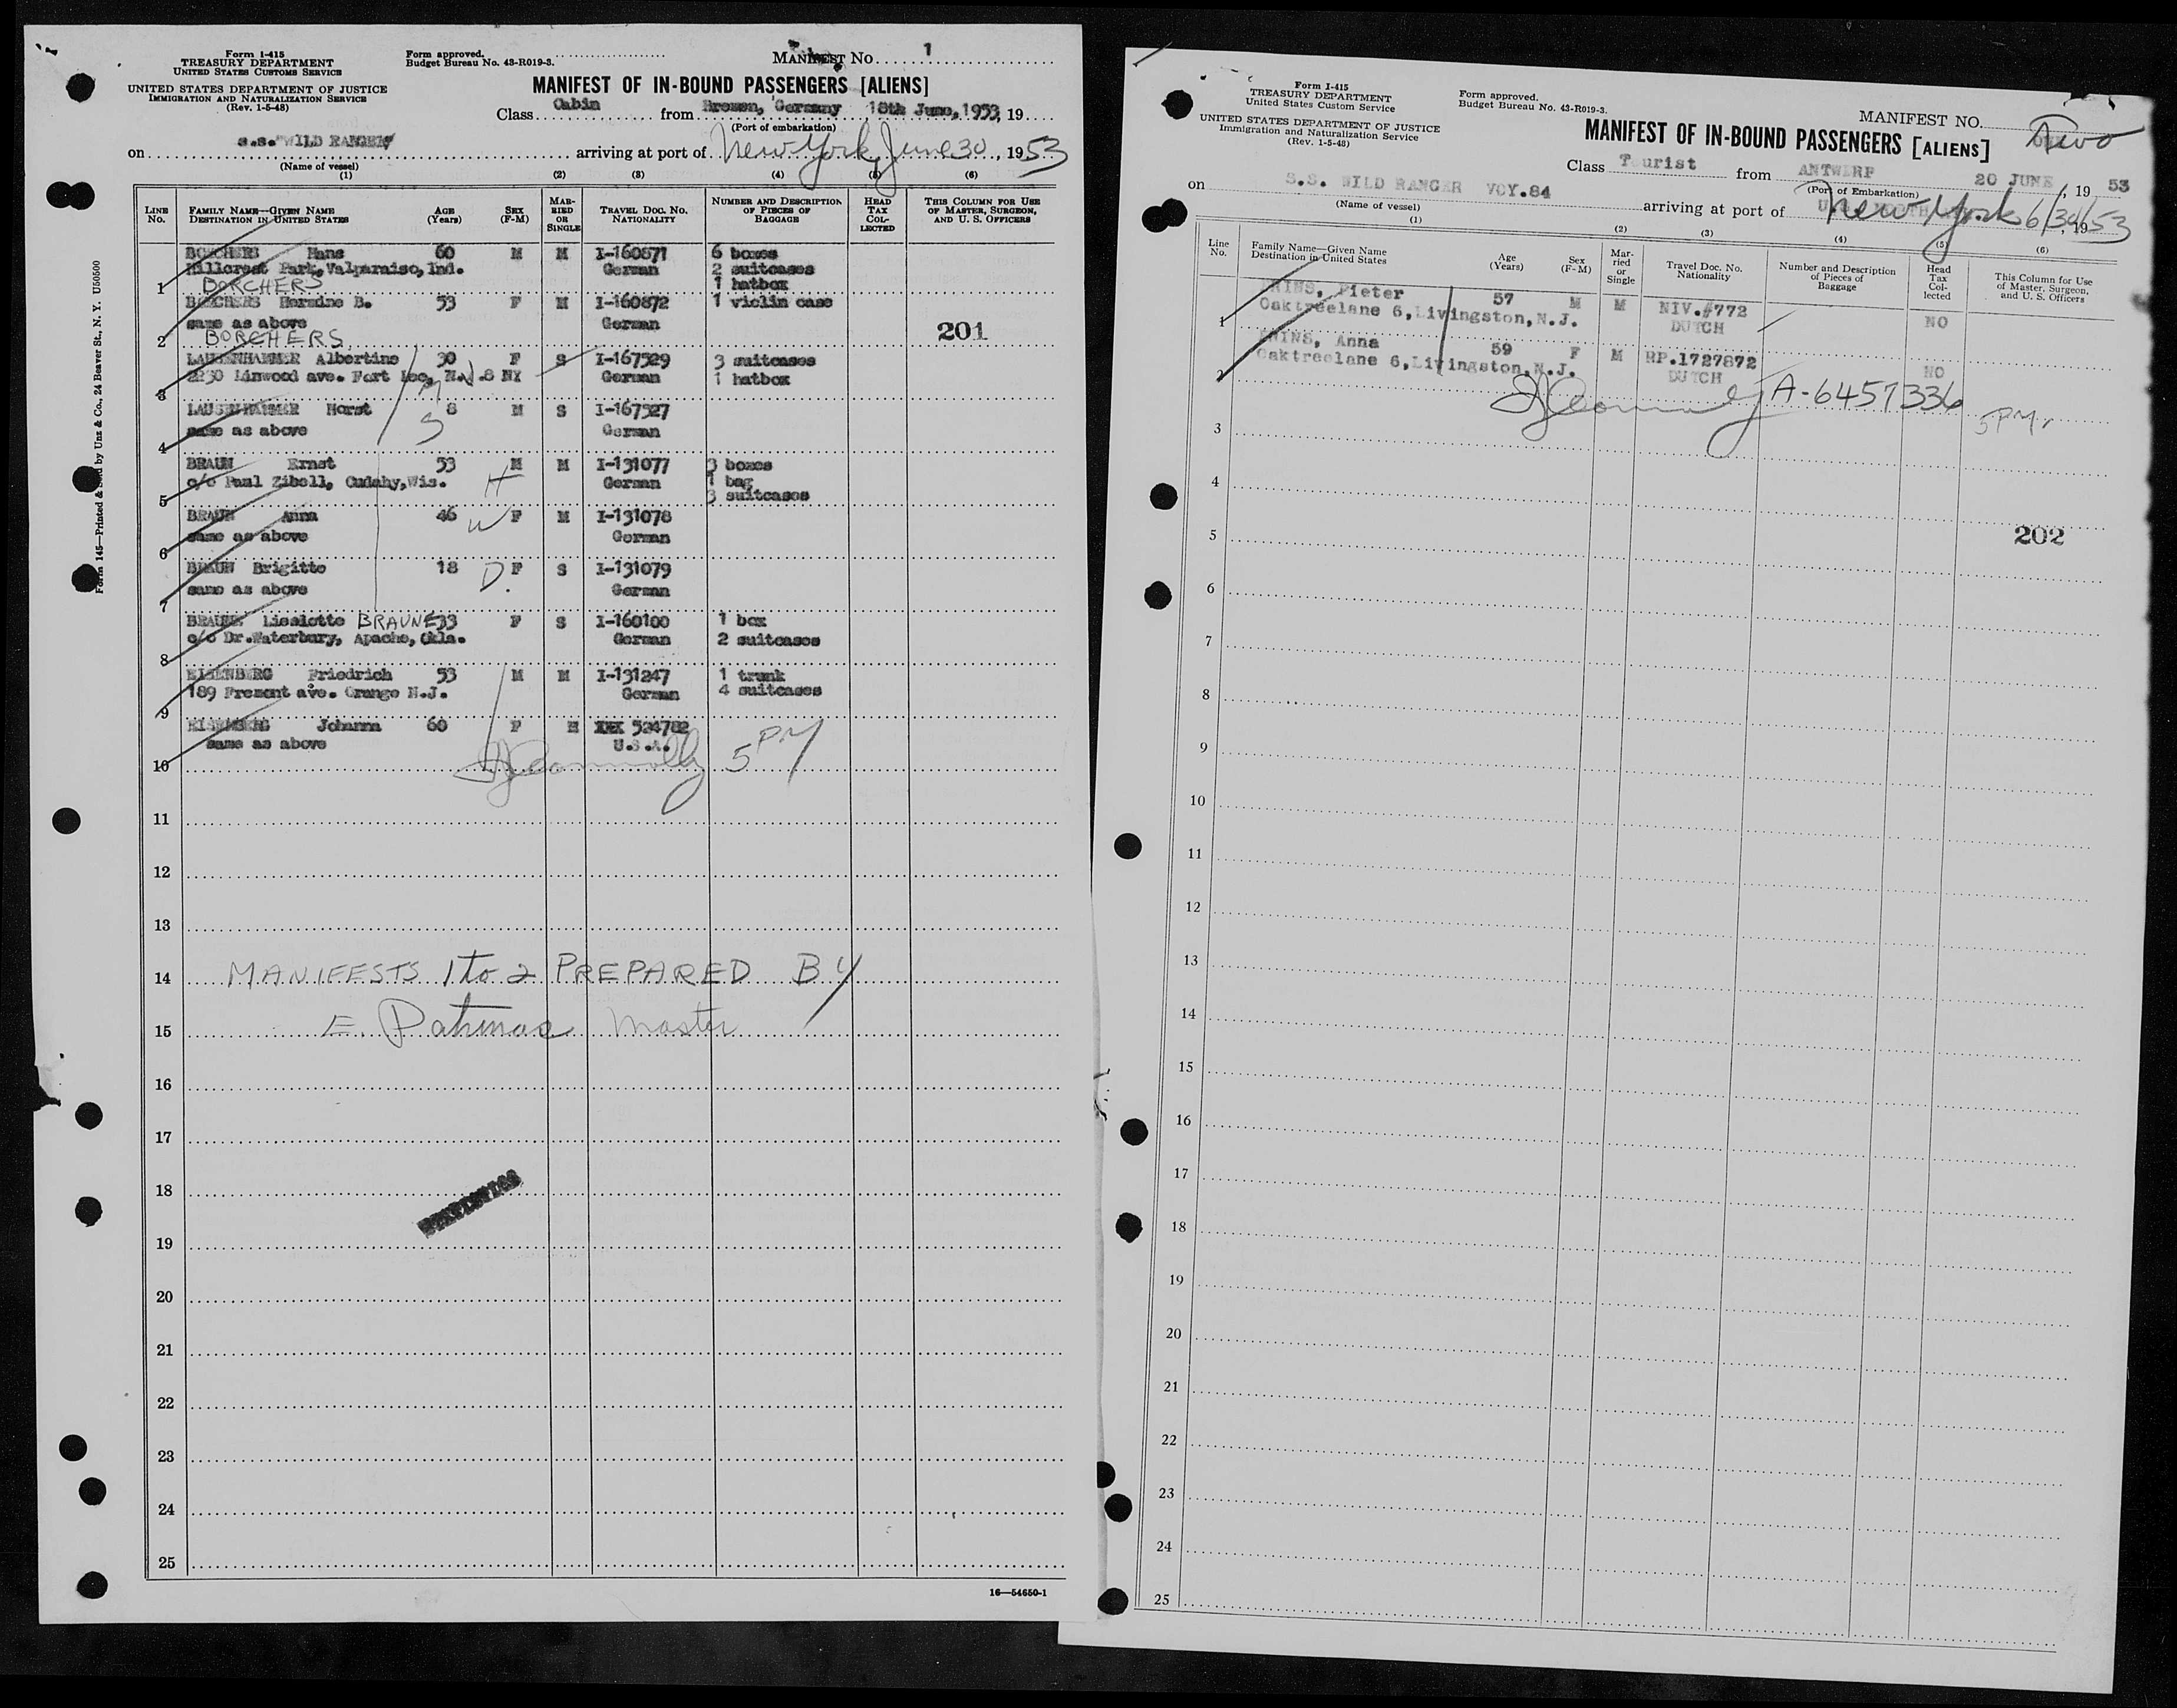 Form I-415
TREASURY DEPARTMENT
UNITED STATES CUSTOMS SERVICE
UNITED STATES DEPARTMENT OF JUSTICE
IMMIGRATION AND NATURALIZATION SERVICE
(Rev. 1-5-48)
Form approved.
Budget Bureau No. 43-R019-3.
MANIFEST No. 1
MANIFEST OF IN-BOUND PASSENGERS [ALIENS]
Class Cabin from Bremen, Germany 18th June, 1953, 19
(Port of embarkation)
on s.s. "WILD RANGER" arriving at port of New York, June 30, 1953
(Name of vessel)
(1) (2) (3) (4) (5) (6)
LINE No. FAMILY NAME—GIVEN NAME DESTINATION IN UNITED STATES AGE (Years) SEX (F-M) MARRIED OR SINGLE TRAVEL DOC. NO. NATIONALITY NUMBER AND DESCRIPTION OF PIECES OF BAGGAGE HEAD TAX COLLECTED THIS COLUMN FOR USE OF MASTER, SURGEON, AND U. S. OFFICERS
BORCHERS Hans 60 M M I-160871 6 boxes
Hillcrest Park, Valparaiso, Ind. German 2 suitcases
1 BORCHERS 1 hatbox
Hermine B. 53 F M I-160872 1 violin case
same as above German
201
2 BORCHERS
LAUSENHAMMER Albertine 30 F S I-167529 3 suitcases
2230 Linwood ave. Fort Lee, N.J. 8 NY German 1 hatbox
3 M
LAUSENHAMMER Horst 8 M S I-167527
same as above German
4 S
BRAUN Ernst 53 M M I-131077 3 boxes
c/o Paul Zibell, Cudahy, Wis. H German 1 bag
5 3 suitcases
BRAUN Anna 46 W F M I-131078
same as above German
6
BRAUN Brigitte 18 D. F S I-131079
same as above German
7
Lieselotte BRAUNE 33 F S I-160100 1 box
c/o Dr. Waterbury, Apache, Okla. German 2 suitcases
8
EISENBERG Friedrich 53 M M I-131247 1 trunk
189 Fremont ave. Orange N.J. German 4 suitcases
9
EISENBERG Johanna 60 F M XXX 524782
same as above U.S.A.
10 5 PM
11
12
13
14 MANIFESTS 1 to 2 PREPARED BY
15 E. Master
16
17
18
19
20
21
22
23
24
25
16—54650-1
Form 145—Printed & Sold by Unz & Co., 24 Beaver St., N. Y. U50500
Form I-415
TREASURY DEPARTMENT
United States Custom Service
UNITED STATES DEPARTMENT OF JUSTICE
Immigration and Naturalization Service
(Rev. 1-5-48)
Form approved.
Budget Bureau No. 43-R019-3.
MANIFEST NO. Two
MANIFEST OF IN-BOUND PASSENGERS [ALIENS]
Class Tourist from ANTWERP 20 JUNE, 19 53
(Port of Embarkation)
on S.S. WILD RANGER VOY.84 arriving at port of New York 6/30/53, 19
(Name of vessel)
(1) (2) (3) (4) (5) (6)
Line No. Family Name—Given Name Destination in United States Age (Years) Sex (F-M) Married or Single Travel Doc. No. Nationality Number and Description of Pieces of Baggage Head Tax Collected This Column for Use of Master, Surgeon, and U. S. Officers
Pieter 57 M M NIV.#772
1 Oaktreelane 6, Livingston, N.J. DUTCH NO
Anna 59 F M RP.1727872
Oaktreelane 6, Livingston, N.J. DUTCH NO
2 A-6457336
5 PM
3
4
5 202
6
7
8
9
10
11
12
13
14
15
16
17
18
19
20
21
22
23
24
25